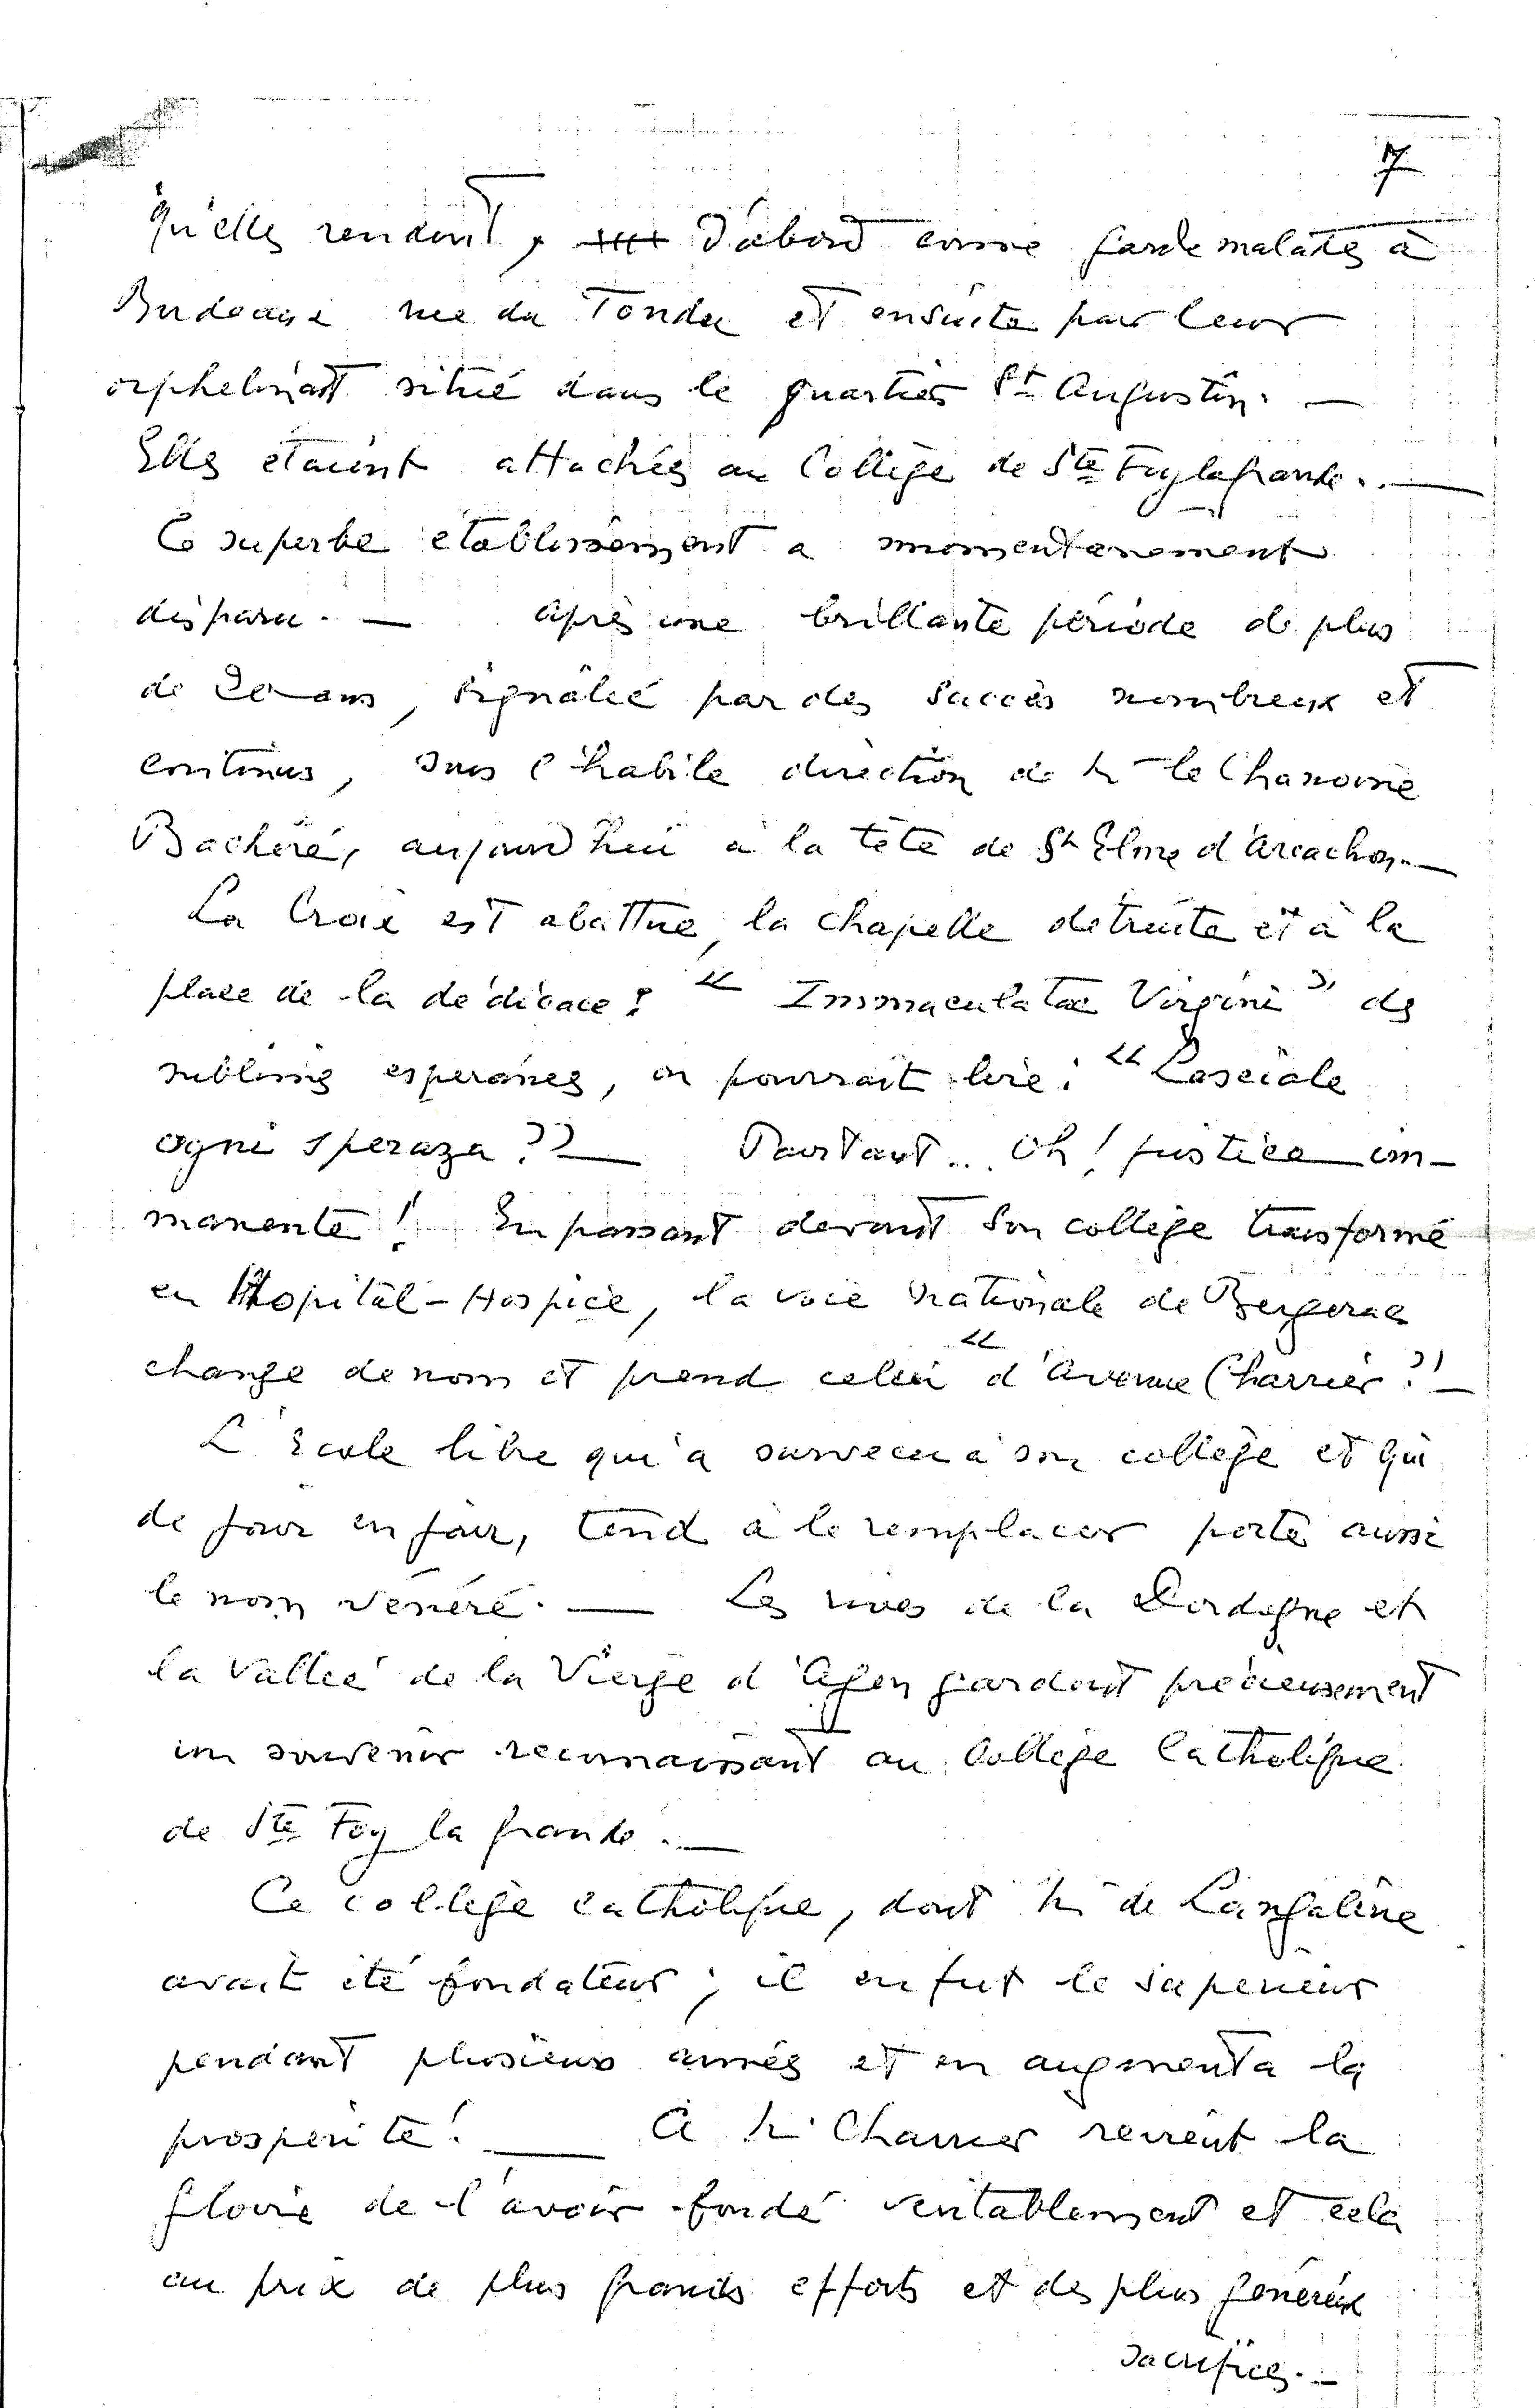 7
qu'elles rendent, d'abord comme garde malades à
Bordeaux rue du Tondu et ensuite par leur
orphelinat situé dans le quartier St Augustin. —
Elles étaient attachées au Collège de Ste Foy la grande. —
Ce superbe établissement a momentanement
disparu. — après une brillante période de plus
de 20 ans, signalée par des succès nombreux et
continus, sous l'habile direction de Mr le Chanoine
Bachéré, aujourd'hui à la tête de St Elme d'Arcachon. —
La Croix est abattue, la chapelle detruite et à la
place de la dédicace : « Immaculatae Virgini » des
sublimes esperances, on pourrait lire : « Lasciale
ogni speraza ?? — Pourtant... Oh ! justice im-
manente ! En passant devant son collège transformé
en Hopital-Hospice, la voie nationale de Bergerac
change de nom et prend celui « d'avenue Charrier ?! —
L'école libre qui a survecu à son collège et qui
de jour en jour, tend à le remplacer porte aussi
le nom vénéré. — Les rives de la Dordogne et
la Vallée de la Vierge d'Agen gardent précieusement
un souvenir reconnaissant au Collège Catholique
de Ste Foy la grande. —
Ce collège catholique, dont Mr de Langalerie
avait été fondateur ; il en fut le superieur
pendant plusieurs années et en augmenta la
prosperité ! — A Mr Charrier revient la
gloire de l'avoir fondé veritablement et cela
au prix de plus grands efforts et des plus généreux
sacrifices. —